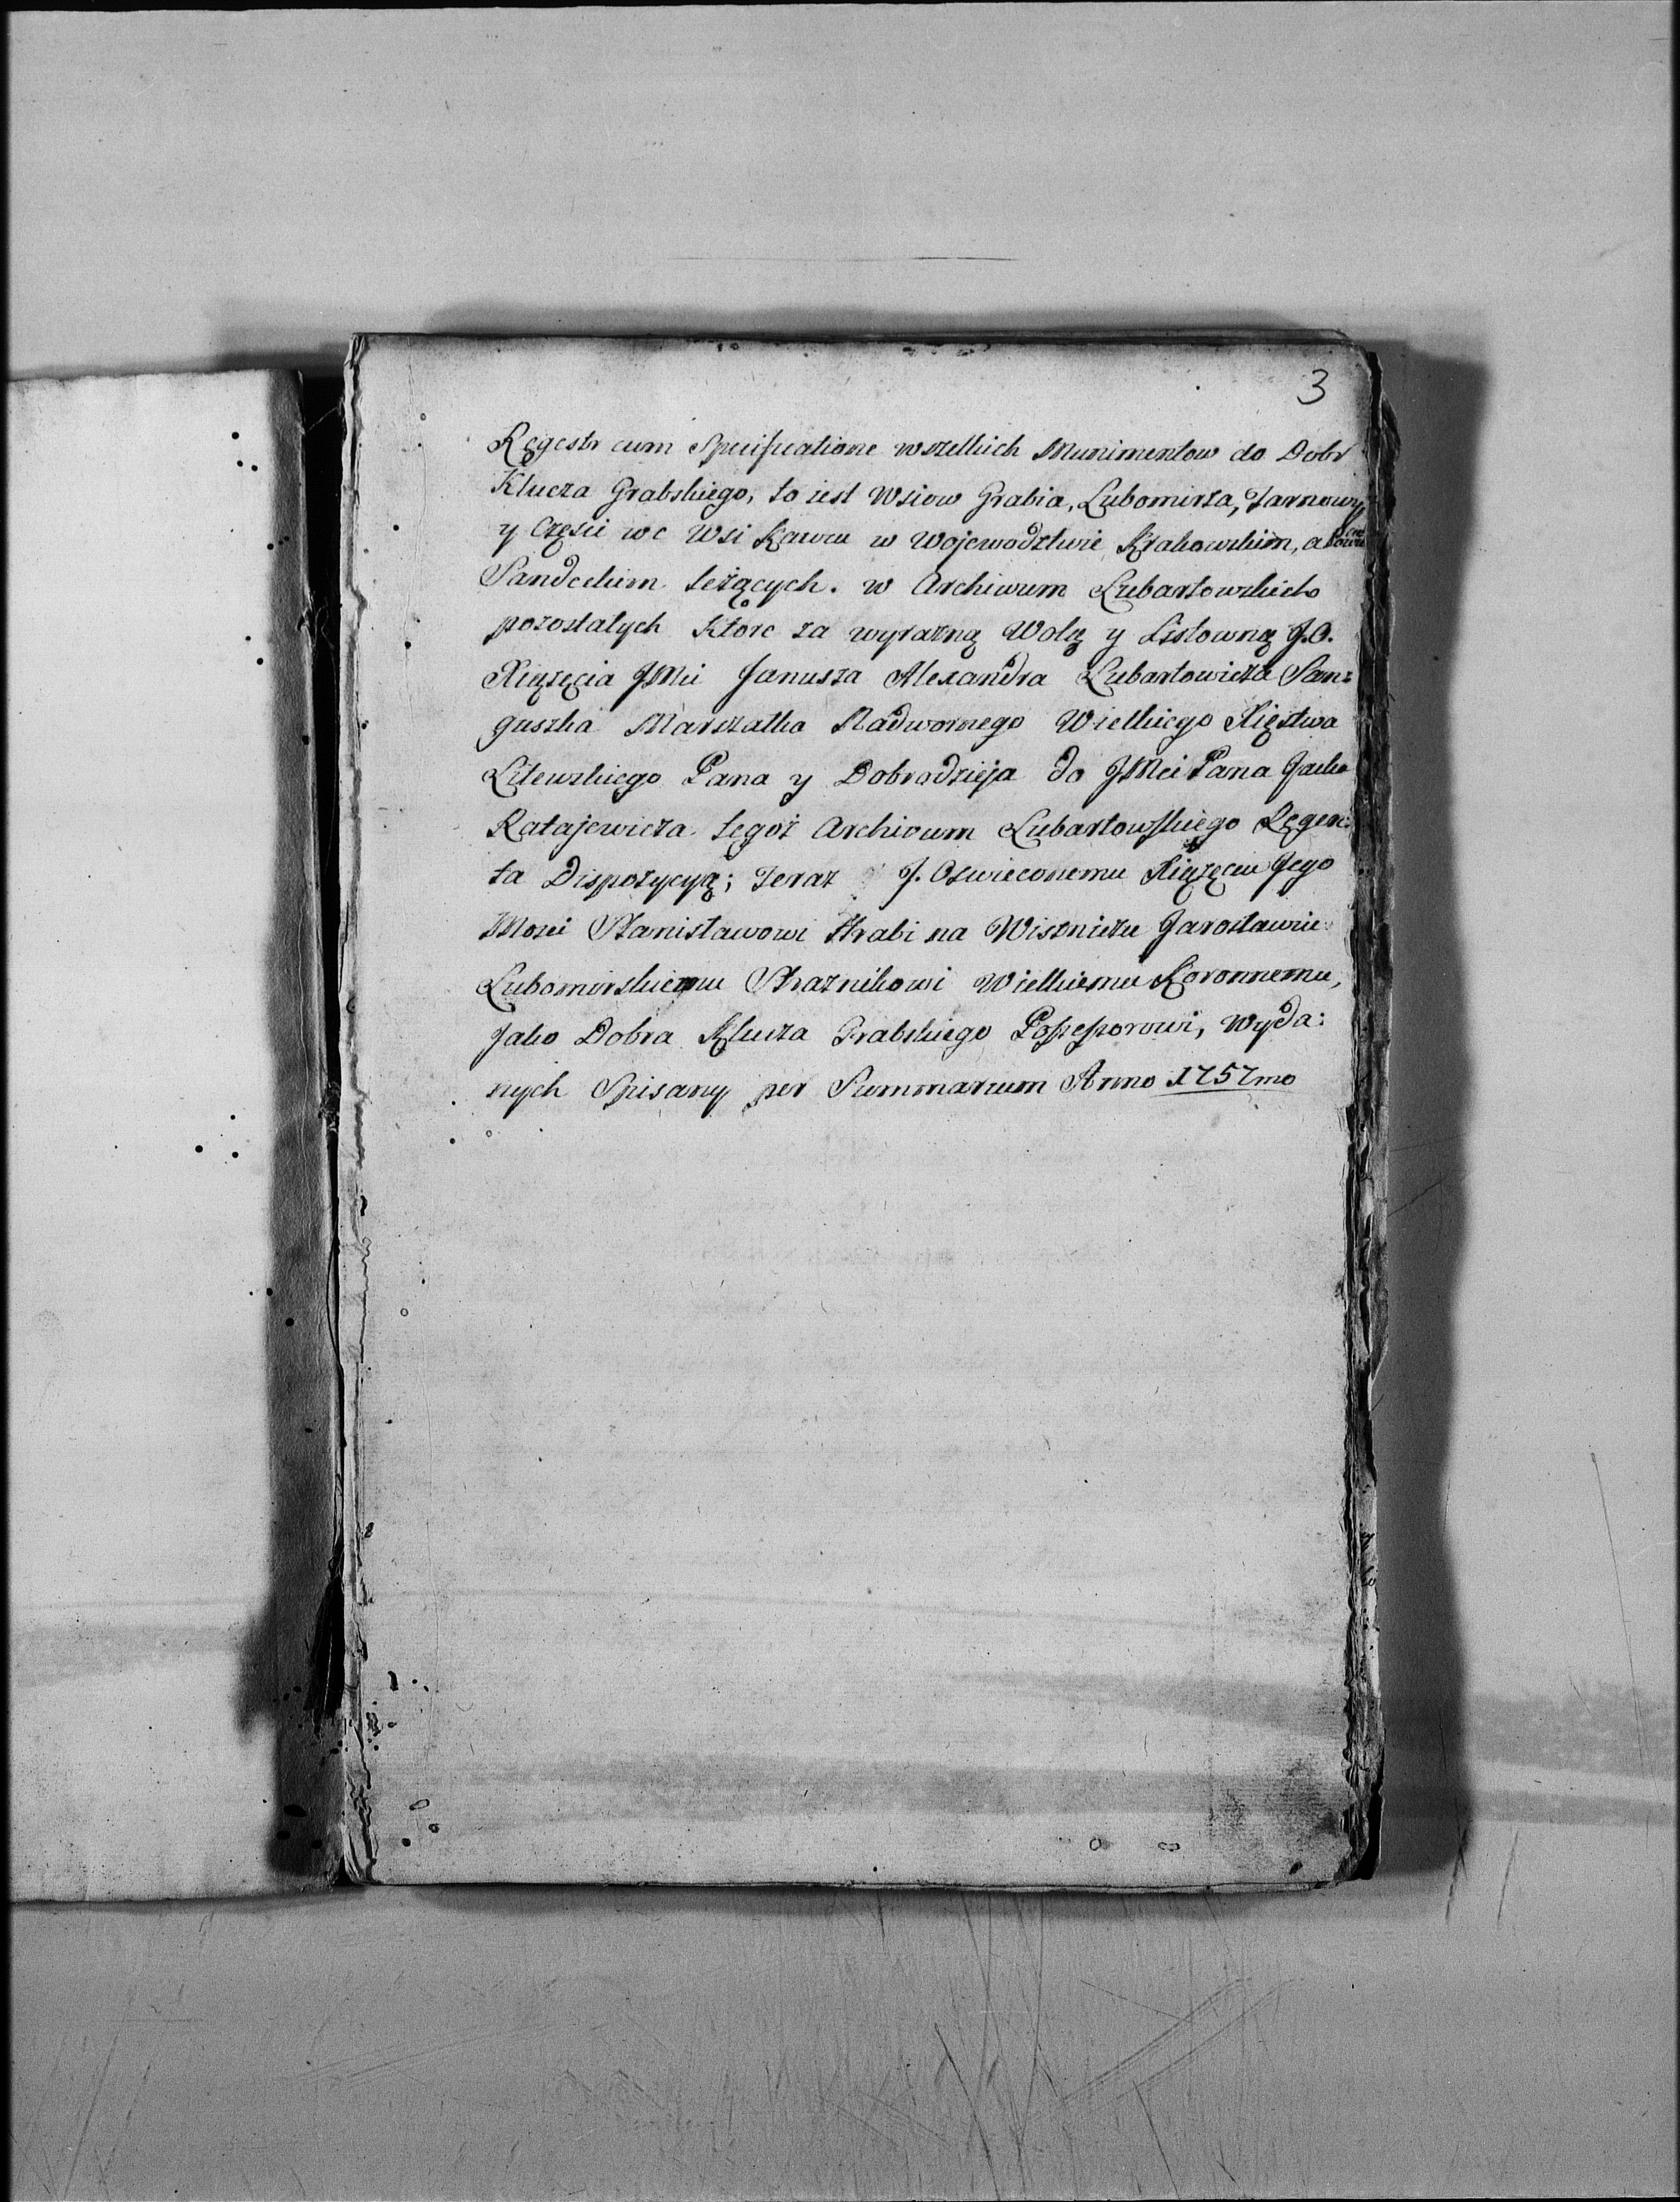 3
Regestr cum Specificatione wszelkich Munimentow do Dobr
Klucza Grabskiego, to iest Wsiow Grabia, Lubomirza, Tarnowy
y Częsci we Wsi Kawcu w Wojewodztwie Krakowskim, a Powie
Sandeckim Leżących. w Archiwum Lubartowskich
pozostałych Ktore za wyrazną Wolą y Listowną J.O.
Xiążęcia JMci Janusza Alexandra Lubartowicza San:
guszka Marszałka Nadwornego Wielkiego Xięstwa
Litewskiego Pana y Dobrodzieja do JMci Pana Jacka
Ratajewicza tegoż Archivum Lubartowskiego Regen:
ta Dispozycyą; Teraz J. Oswieconemu Xiążęciu Jego
Mosci Stanisławowi Hrabi na Wisniczu Jarosławiu
Lubomirskiemu Strażnikowi Wielkiemu Koronnemu,
Jako Dobra Klucza Grabskiego Possessorowi, Wyda:
nych Spisany per Summarium Anno 1757mo